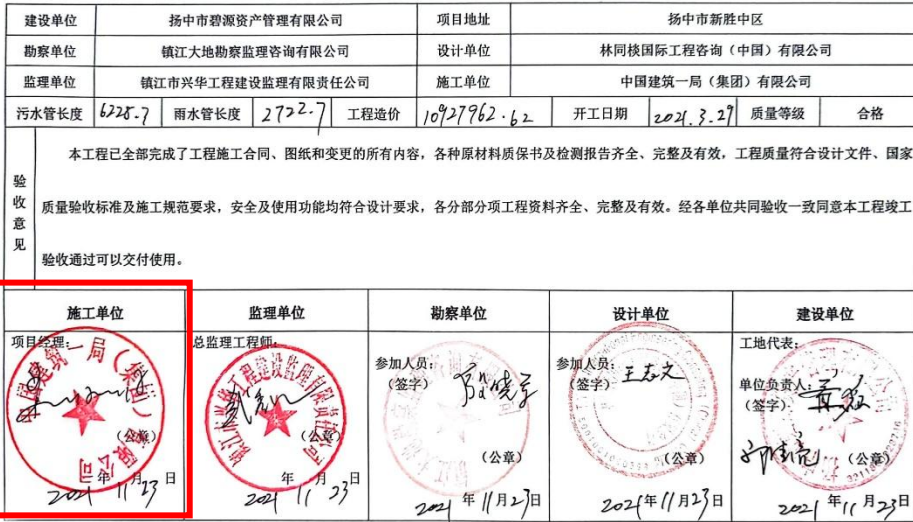 建设单位 扬中市碧源资产管理有限公司 项目地址 扬中市新胜中区
勘察单位 镇江大地勘察监理咨询有限公司 设计单位 林同棪国际工程咨询（中国）有限公司
监理单位 镇江市兴华工程建设监理有限责任公司 施工单位 中国建筑一局（集团）有限公司
污水管长度 6228.7 雨水管长度 2722.7 工程造价 10927962.62 开工日期 2021.3.29 质量等级 合格
验收意见
本工程已全部完成了工程施工合同、图纸和变更的所有内容，各种原材料质保书及检测报告齐全、完整及有效，工程质量符合设计文件、国家
质量验收标准及施工规范要求，安全及使用功能均符合设计要求，各分部分项工程资料齐全、完整及有效。经各单位共同验收一致同意本工程竣工
验收通过可以交付使用。
施工单位 监理单位 勘察单位 设计单位 建设单位
项目经理： 总监理工程师： 参加人员： 参加人员： 工地代表：
（签字） （签字） 王志文 单位负责人：
（签字）
（公章） （公章） （公章） （公章） （公章）
2021年11月23日 2021年11月23日 2021年11月23日 2021年11月23日 2021年11月23日